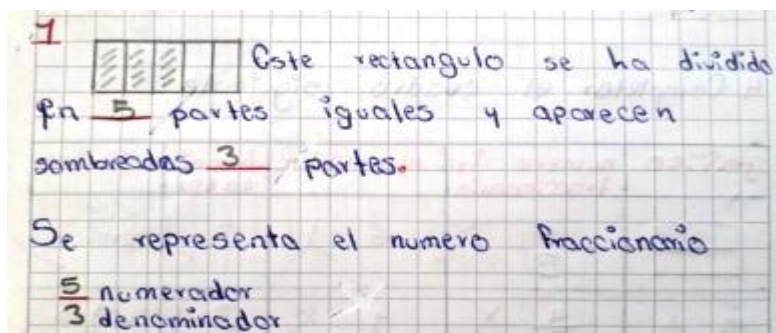 1
Este rectangulo se ha dividido
en 5 partes iguales y aparecen
sombreadas 3 partes.
Se representa el numero fraccionario
5 numerador
3 denominador